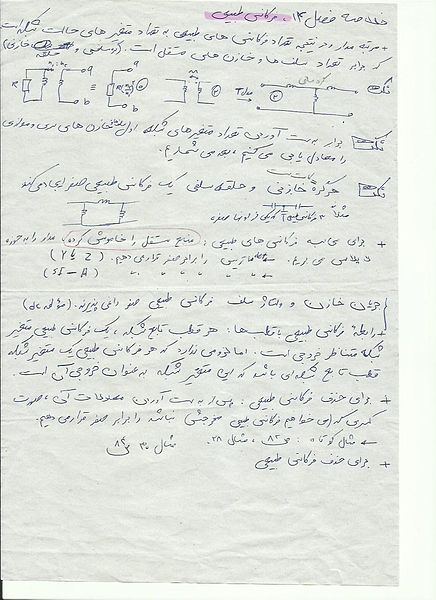 خلاصه فصل ۱۴، فرکانس طبیعی
+ مرتبه مدار و در نتیجه تعداد فرکانس های طبیعی به تعداد متغیر های حالت شبکه است
که برابر تعداد سلف ها و خازن های مستقل است. (گره سلفی و حلقه خازنی)
نکته
a
b
a
b
نکته برای به دست آوردن تعداد متغیرهای شبکه اول خازن های سری و موازی
را معادل یابی می کنیم، بعد می شماریم.
نکته هر گره خازنی و حلقه سلفی یک فرکانس طبیعی صفر ایجاد می کند
مثلا فرکانس یکی از اونها صفره
+ برای محاسبه فرکانس های طبیعی: منابع مستقل را خاموش کرده، مدار را به حوزه
لاپلاس می بریم. دترمینان ماتریس را برابر صفر قرار می دهیم. (Z یا Y)
(SI-A)
جریان خازن و ولتاژ سلف فرکانس طبیعی صفر را نمی پذیرند. (مؤلفه dc)
+ رابطه فرکانس طبیعی با قطب ها: هر قطب تابع شبکه، یک فرکانس طبیعی متغیر
شبکه متناظر خروجی است. اما لزومی ندارد که هر فرکانس طبیعی یک متغیر شبکه
قطب تابع شبکه ای باشد که این متغیر شبکه به عنوان خروجی آن است.
+ برای حذف فرکانس طبیعی: پس از به دست آوردن معادلات آن، صورت
کسری که می خواهم فرکانس طبیعی نباشد را برابر صفر قرار می دهیم.
مثال کوتاه: ص ۸۲، مثال ۲۸. مثال ۳۰ ص ۸۴
+ برای حذف فرکانس طبیعی